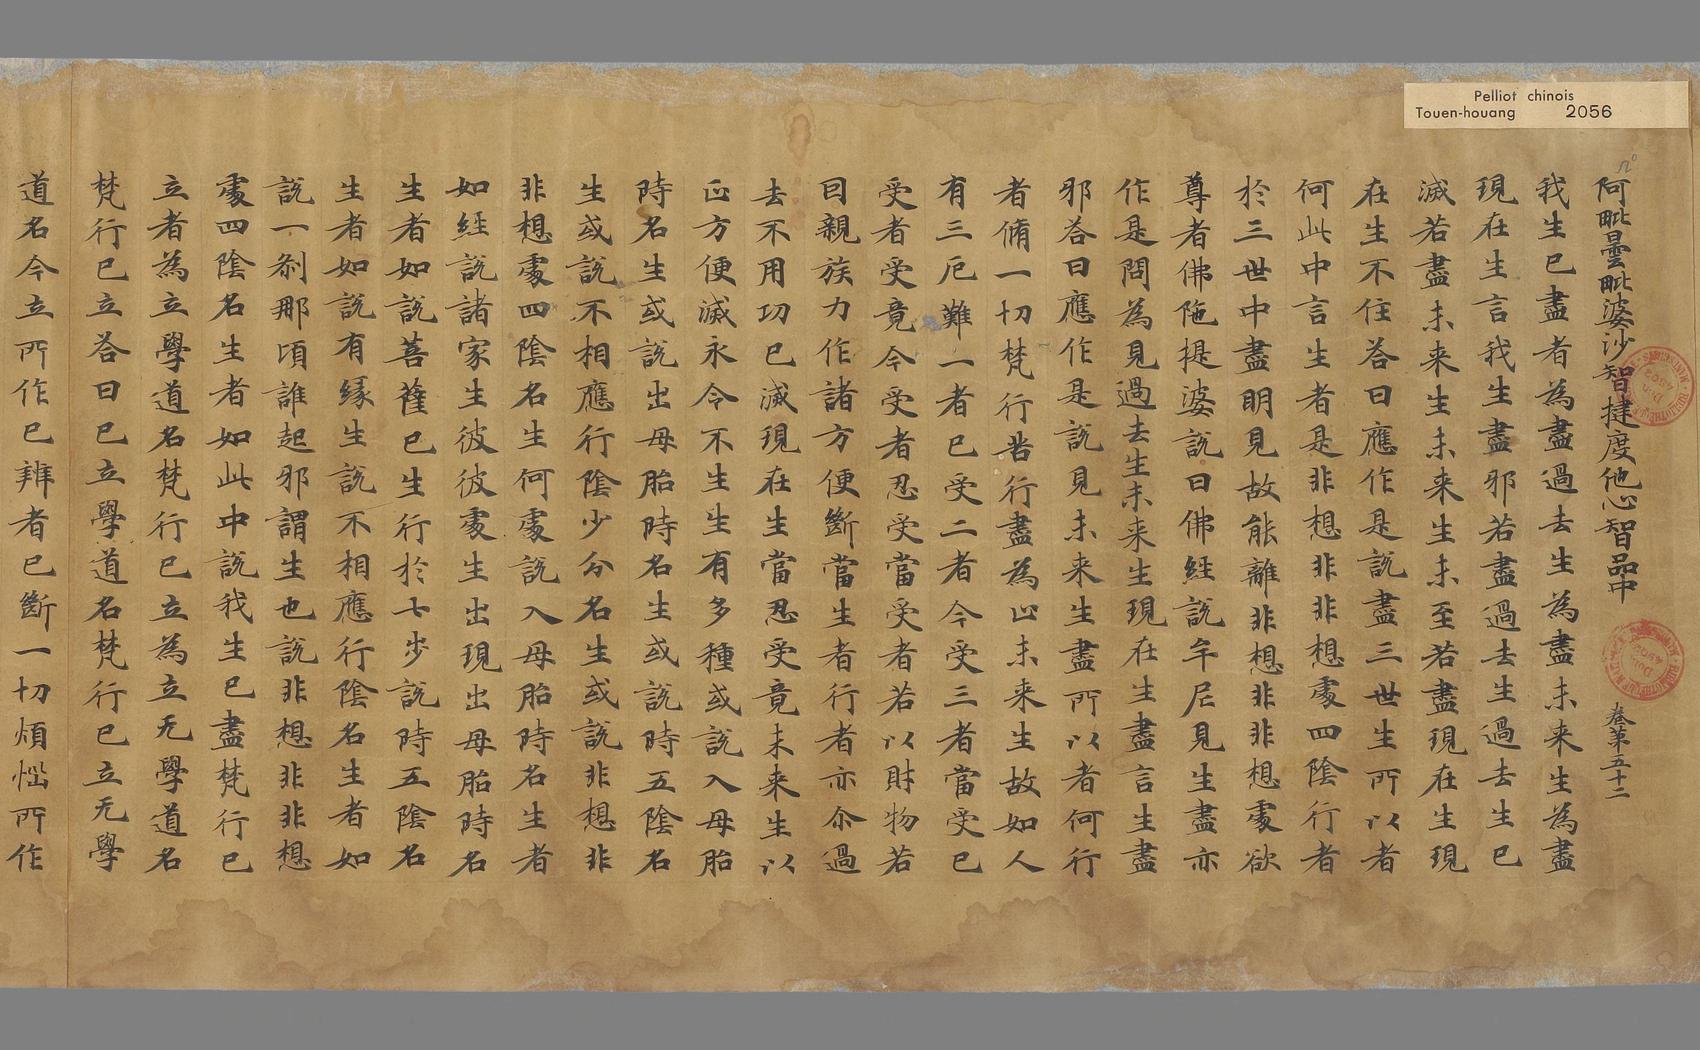 Pelliot chinois
Touen-houang 2056
阿毗曇毗婆沙智揵度他心智品中 卷第五十二
我生已盡者為盡過去生為盡未来生為盡
現在生言我生盡邪若盡過去生過去生已
滅若盡未来生未来生未至若盡現在生現
在生不住荅曰應作是說盡三世生所以者
何此中言生者是非想非非想處四陰行者
於三世中盡明見故能離非想非非想處欲
尊者佛陁提婆說曰佛經說牟尼見生盡亦
作是問為見過去生未来生現在生盡言生盡
邪荅曰應作是說見未来生盡所以者何行
者脩一切梵行苦行盡為止未来生故如人
有三厄難一者已受二者今受三者當受已
受者受竟今受者忍受當受者若以財物若
曰親族力作諸方便斷當生者行者亦尒過
去不用功已滅現在生當忍受竟未来生以
正方便滅永令不生生有多種或說入母胎
時名生或說出母胎時名生或說時五陰名
生或說不相應行陰少分名生或說非想非
非想處四陰名生何處說入母胎時名生者
如經說諸家生彼彼處生出現出母胎時名
生者如說菩薩已生行於七步說時五陰名
生者如說有緣生說不相應行陰名生者如
說一剎那頃誰起邪謂生也說非想非非想
處四陰名生者如此中說我生已盡梵行已
立者為立學道名梵行已立為立无學道名
梵行已立荅曰已立學道名梵行已立无學
道名今立所作已辨者已斷一切煩惱所作